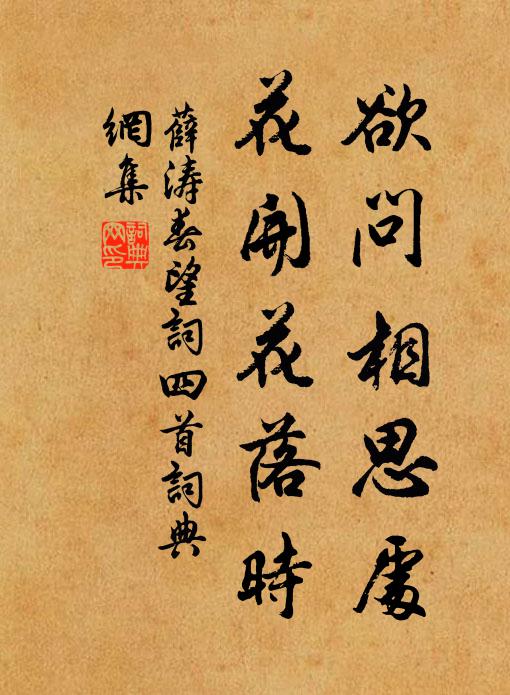 欲问相思處
花開花落時
薛涛春望詞四首詞典
網集
詞典
网印